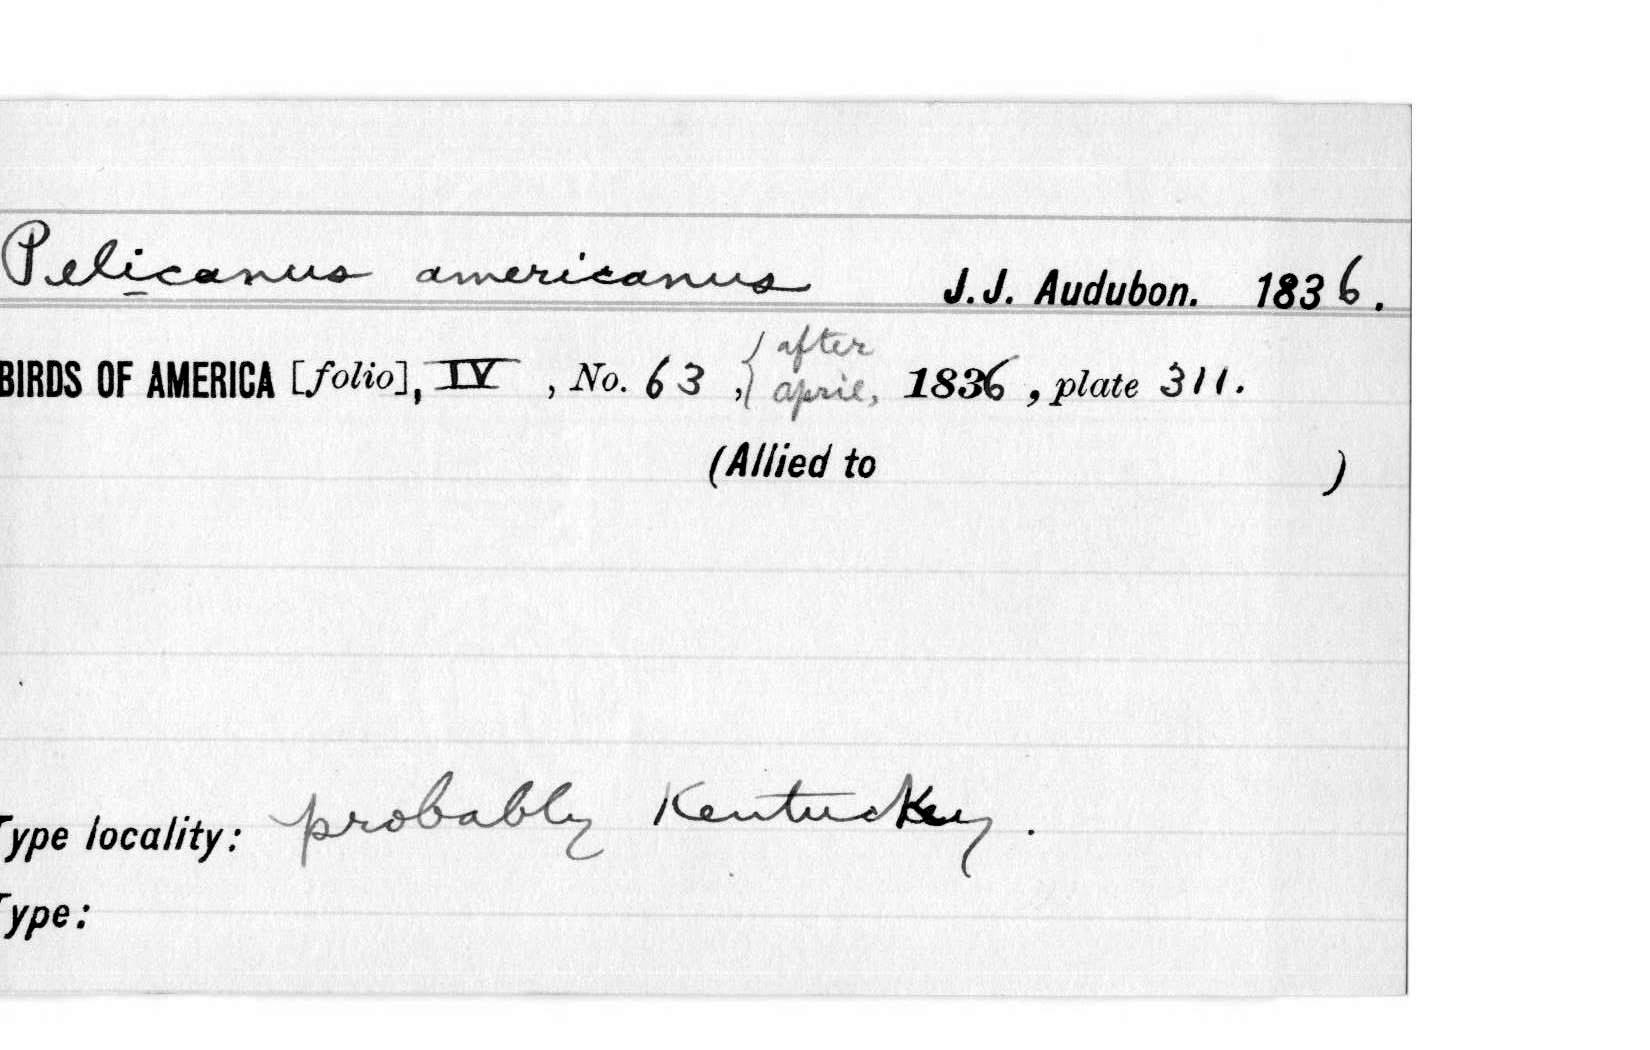 Pelicanus americanus J.J. Audubon. 1836.
BIRDS OF AMERICA [folio], IV, No. 63, { after april, 1836, plate 311.
(Allied to )
Type locality: probably Kentucky.
Type: